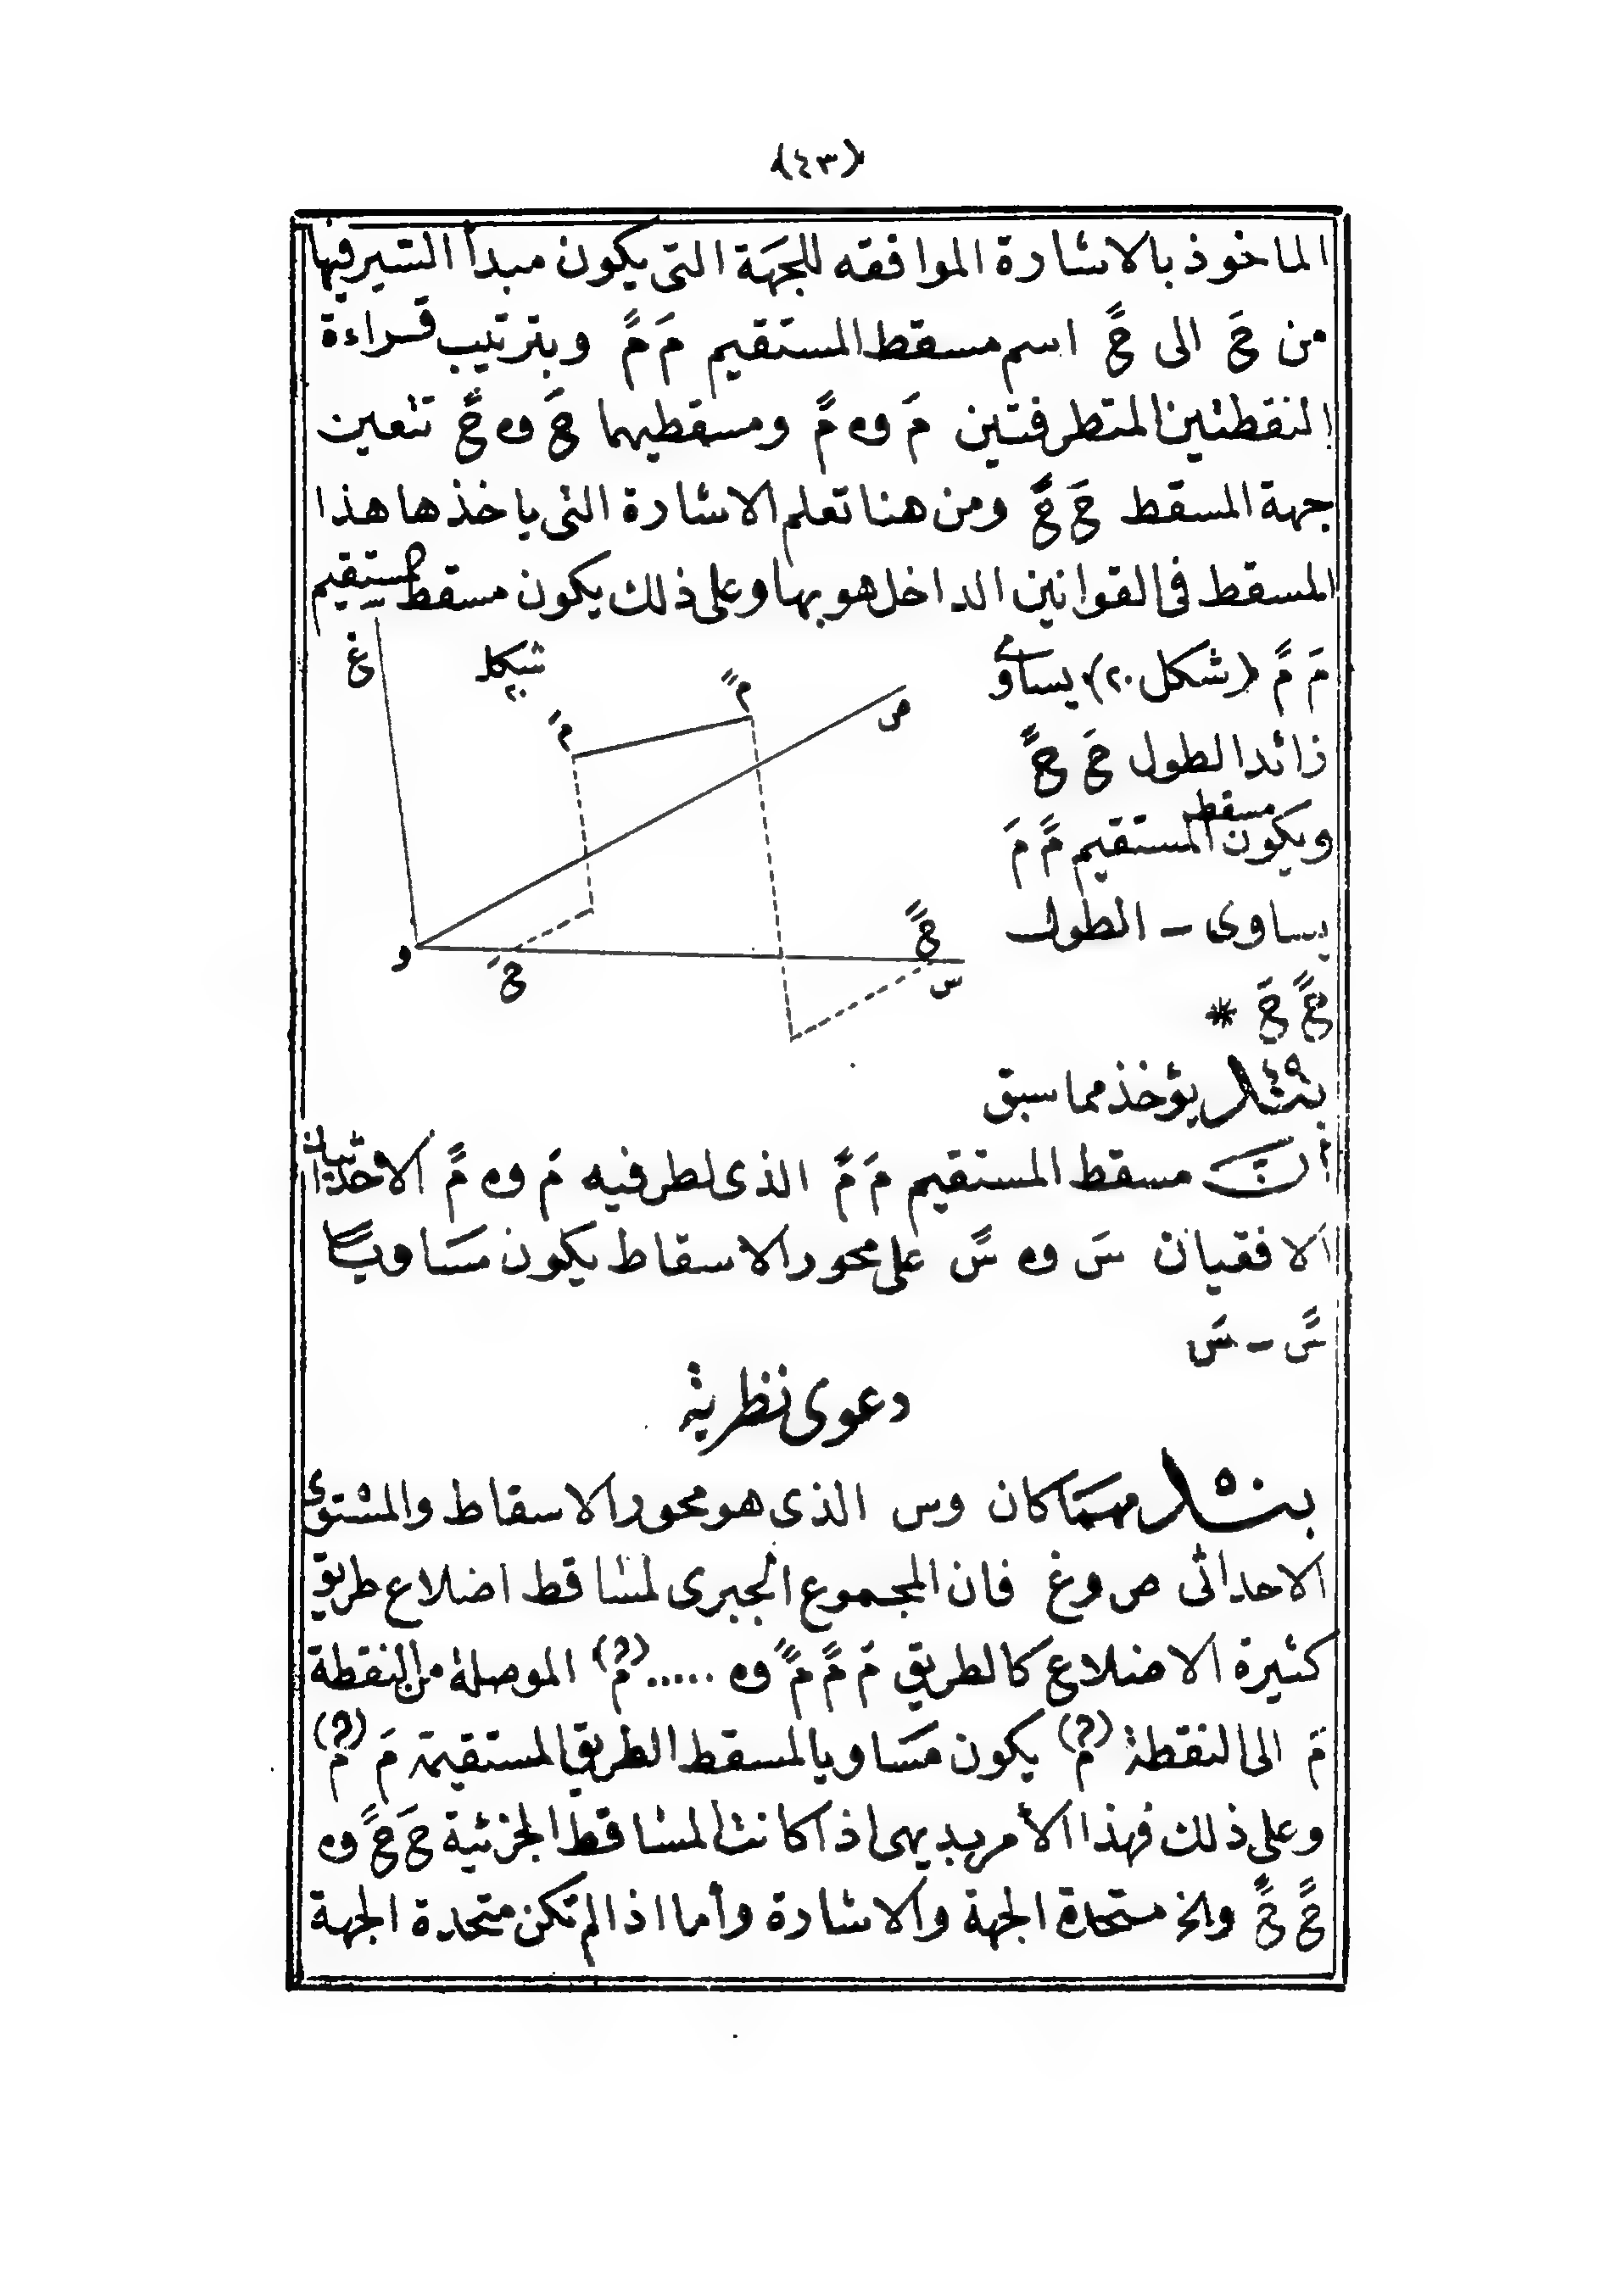 (٤٣)
الماخوذ بالاشارة الموافقه للجهة التى يكون مبدأ السير فيها
من حَ الى حً اسم مسقط المستقيم مَ مً وبترتيب قراءة
النقطتين المتطرفتين مَ و مً ومسقطيهما حَ و حً تتعين
جهة المسقط حَ حً ومن هنا تعلم الاشارة التى ياخذها هذا
المسقط فى القوانين الداخل هو بها وعلى ذلك يكون مسقط مستقيم
مَ مً (شكل ٢٠) يساوى
زائدا لطول حَ حً
ويكون مسقط المستقيم مً مَ
يساوى - الطول
حً حَ *
غ
شكل ٢٠
مً
مَ
ص
و
حَ
حً
س
بند ٤٩ يؤخذ مما سبق
أن مسقط المستقيم مَ مً الذى لطرفيه مَ و مً الاحداثيان
الافقيان سَ و سً على محور الاسقاط يكون مساويا
سً - سَ
دعوى نظرية
بند ٥٠ مهما كان وس الذى هو محور الاسقاط والمستوى
الاحداثى ص وغ فان المجموع الجبرى لمساقط اضلاع طريق
كثيرة الاضلاع كالطريق مَ مً مً و ..... م(ن) الموصلة من النقطة
مَ الى النقطة م(ن) يكون مساويا لمسقط الطريق المستقيمة مَ م(ن)
وعلى ذلك فهذا الأمر بديهى اذا كانت المساقط الجزئية حَ حً و
حً حً والخ متحدة الجهة والاشارة وأما اذا لم تكن متحدة الجهة